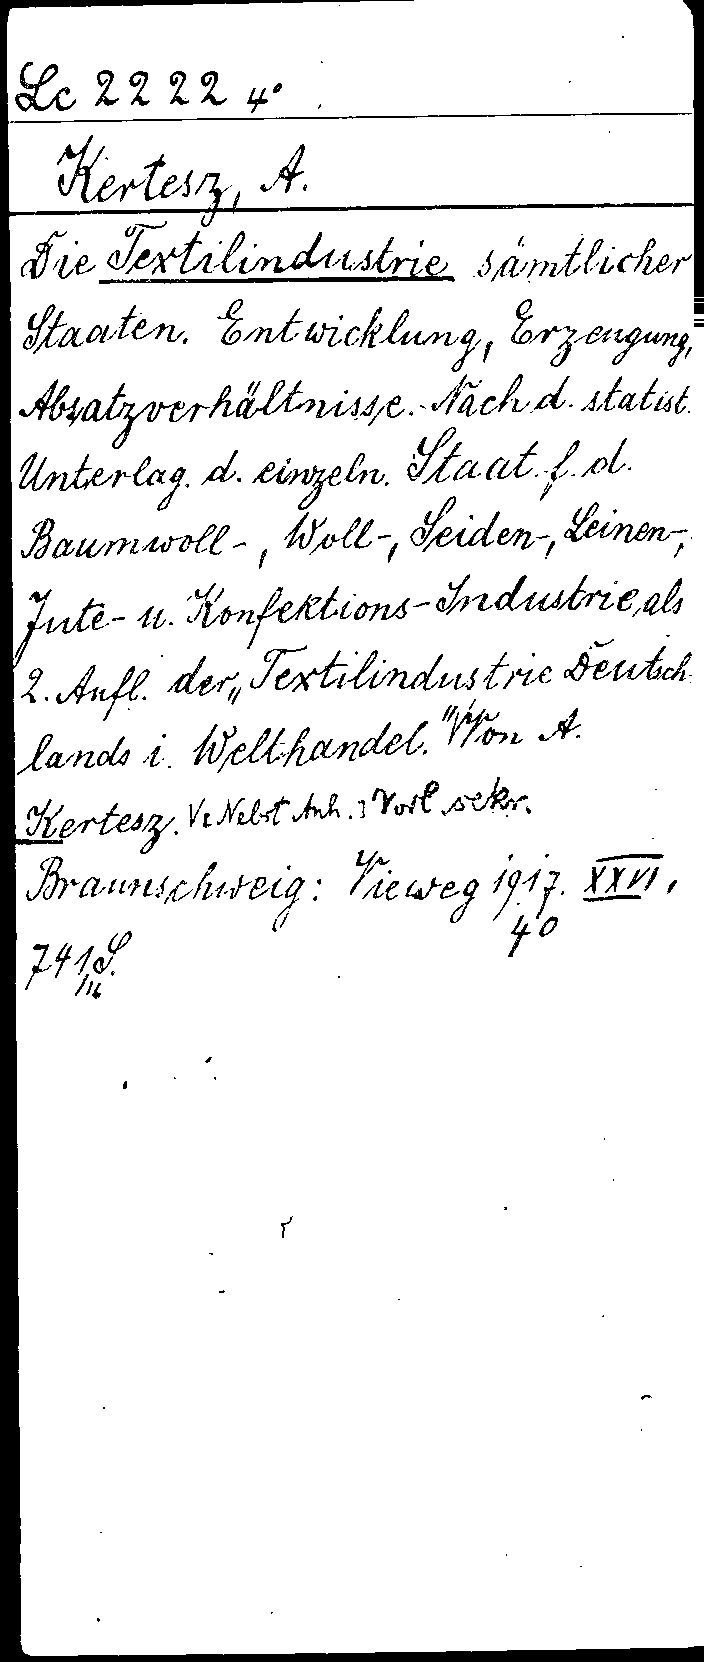 Lc 2222 4°
Kertesz, A.
Die Textilindustrie sämtlicher
Staaten. Entwicklung, Erzeugung,
Absatzverhältnisse. Nach d. statist.
Unterlag. d. einzeln. Staat. f. d.
Baumwoll-, Woll-, Seiden-, Leinen-,
Jute- u. Konfektions-Industrie, als
2. Aufl. der „Textilindustrie Deutsch-
lands i. Welthandel." Von A.
Kertesz. Nebst Anh.
Braunschweig: Vieweg 1917. XXVI,
741 S.
4°